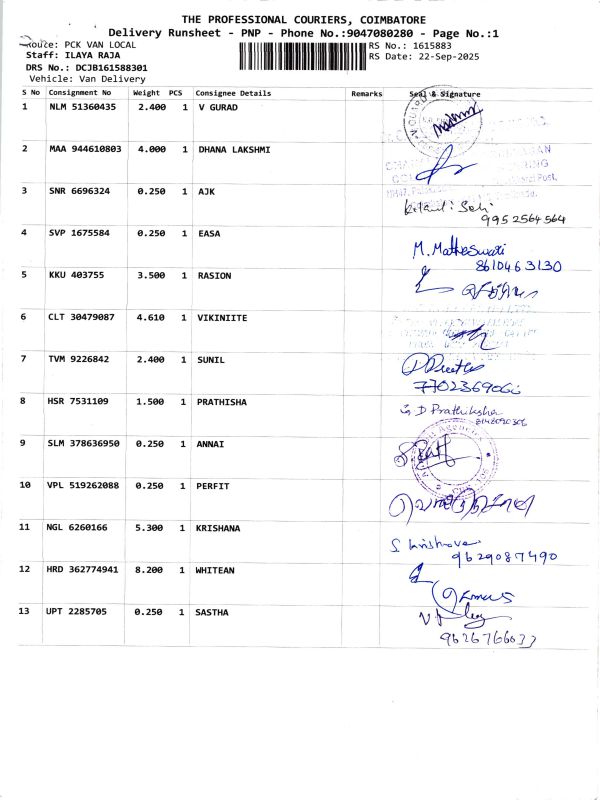 THE PROFESSIONAL COURIERS, COIMBATORE
Delivery Runsheet - PNP - Phone No.:9047080280 - Page No.:1
Route: PCK VAN LOCAL
RS No.: 1615883
Staff: ILAYA RAJA
RS Date: 22-Sep-2025
DRS No.: DCJB161588301
Vehicle: Van Delivery
S No Consignment No Weight PCS Consignee Details Remarks Seal & Signature
1 NLM 51360435 2.400 1 V GURAD
2 MAA 944610803 4.000 1 DHANA LAKSHMI
3 SNR 6696324 0.250 1 AJK
9952564564
4 SVP 1675584 0.250 1 EASA
M. Matheswati
8610463130
5 KKU 403755 3.500 1 RASION
6 CLT 30479087 4.610 1 VIKINIITE
7 TVM 9226842 2.400 1 SUNIL
8 HSR 7531109 1.500 1 PRATHISHA
G D Prathiksha
9 SLM 378636950 0.250 1 ANNAI
10 VPL 519262088 0.250 1 PERFIT
11 NGL 6260166 5.300 1 KRISHANA
9629087490
12 HRD 362774941 8.200 1 WHITEAN
13 UPT 2285705 0.250 1 SASTHA
9626766033